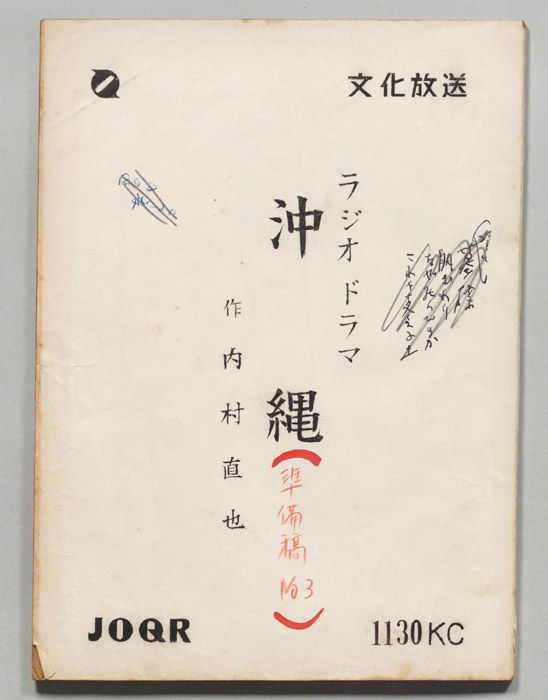 文化放送
ラジオドラマ
沖縄
(準備稿 No3)
作 内村直也
JOQR
1130KC